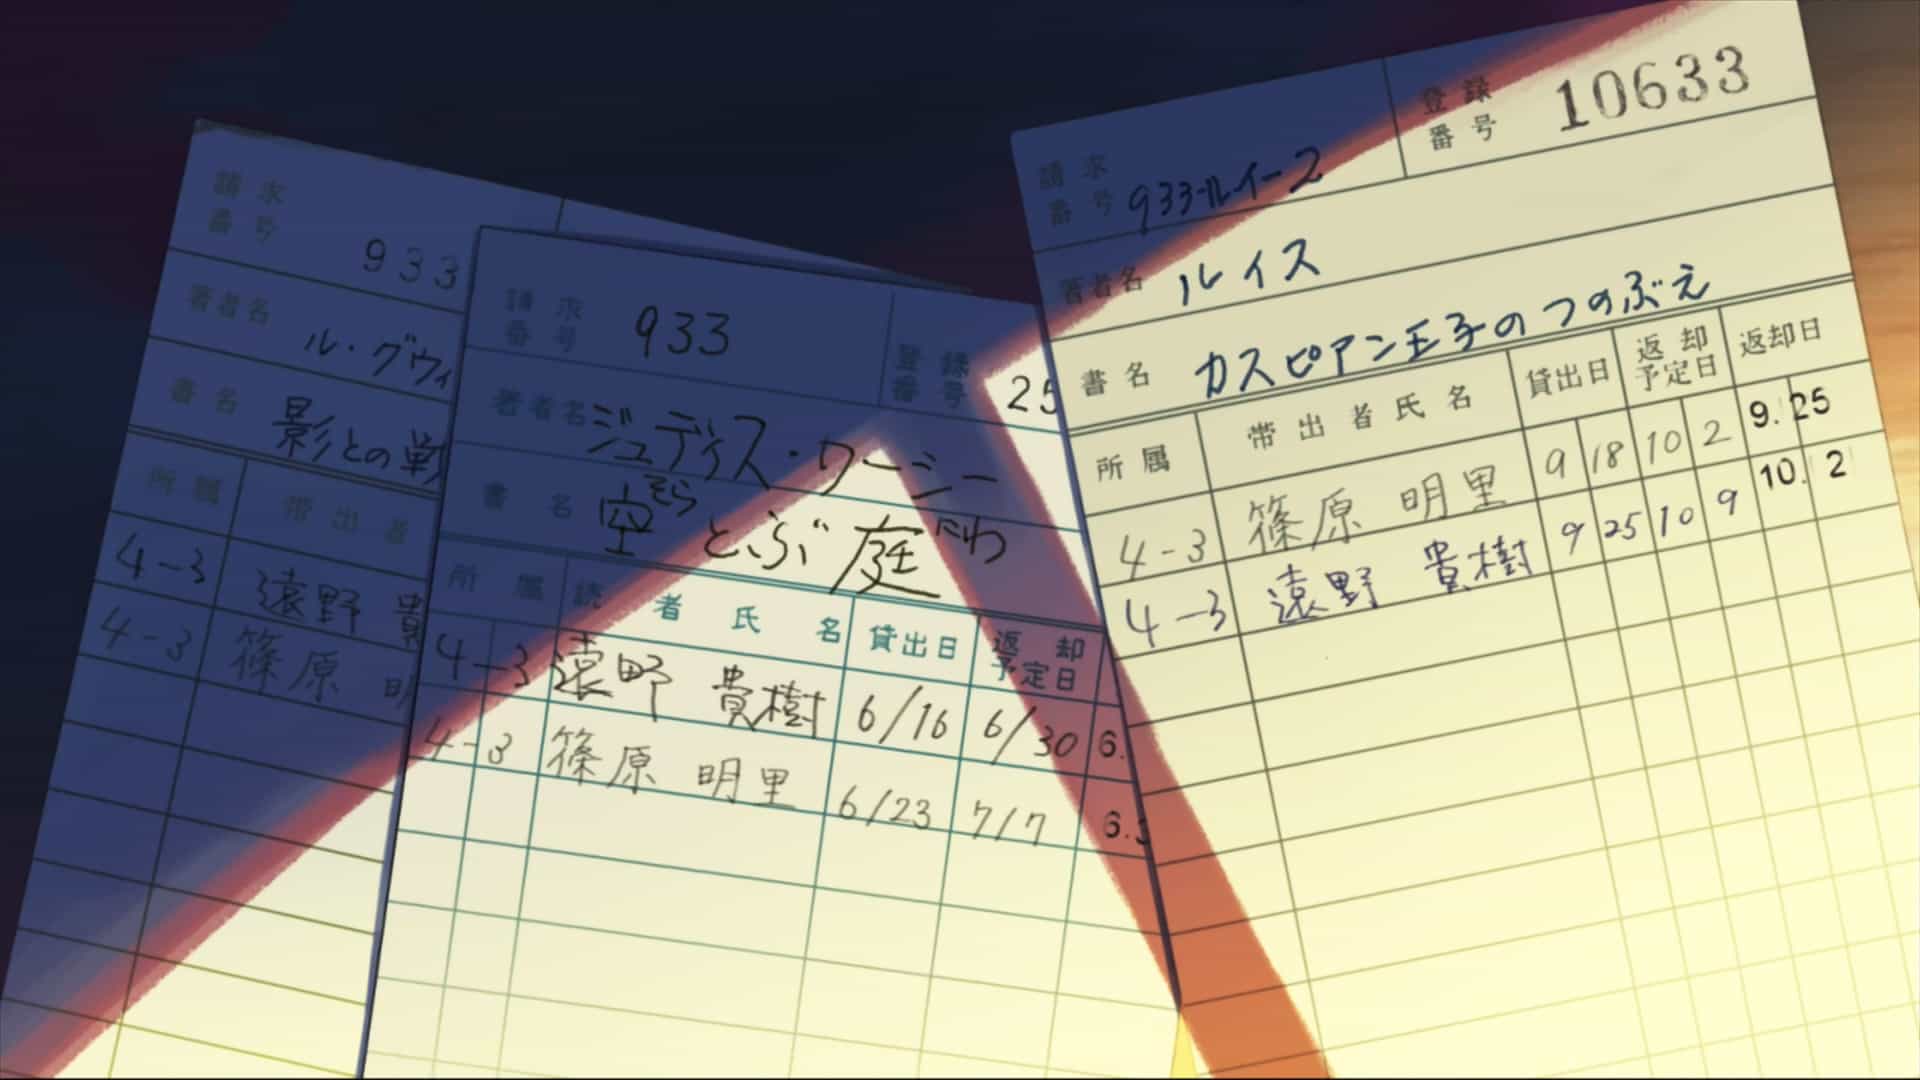 請求番号 933
著者名 ル・グウィ
書名 影との戦
所属 帯出者
4-3 遠野 貴
4-3 篠原 明
請求番号 933 登録番号 25
著者名 ジュディス・ワーシー
書名 空とぶ庭
そら にわ
所属 読者氏名 貸出日 返却予定日
4-3 遠野 貴樹 6/16 6/30 6.
4-3 篠原 明里 6/23 7/7 6.3
請求番号 933-ルイ-2 登録番号 10633
著者名 ルイス
書名 カスピアン王子のつのぶえ
所属 帯出者氏名 貸出日 返却予定日 返却日
4-3 篠原 明里 9 18 10 2 9.25
4-3 遠野 貴樹 9 25 10 9 10. 2